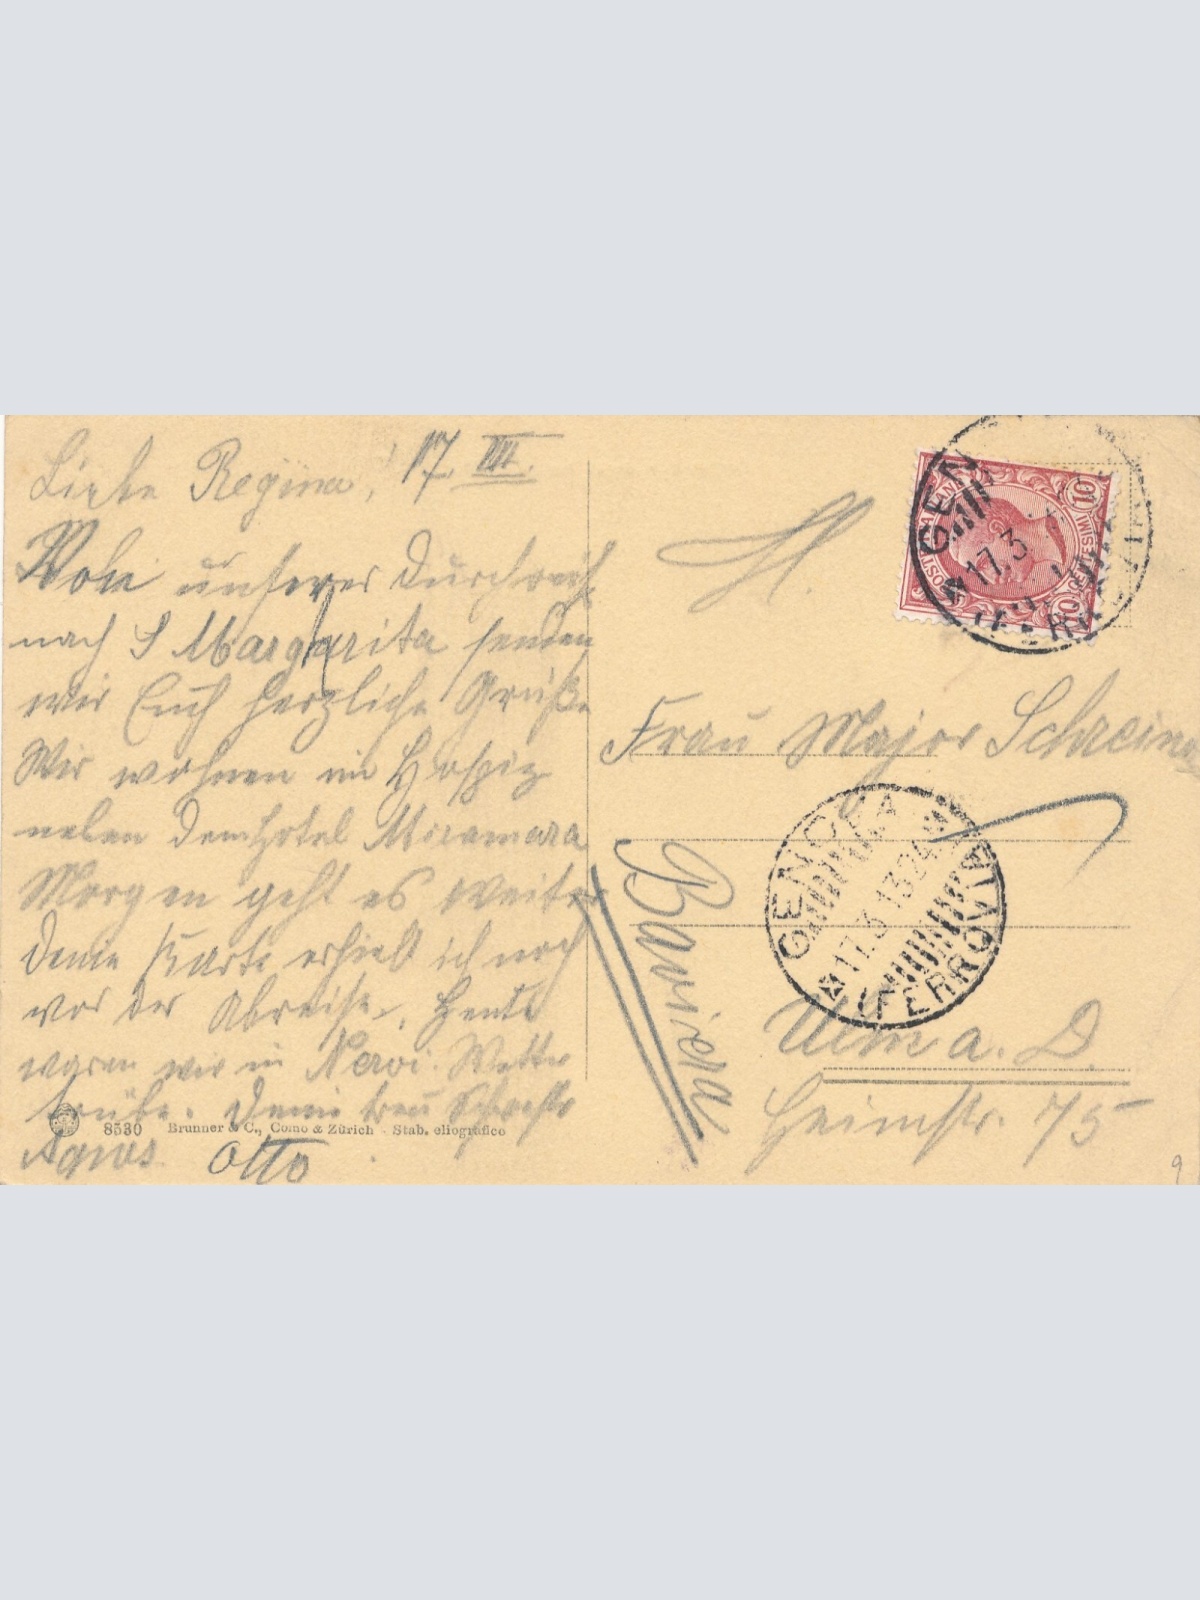 Liebe Regina! 17. III.
Von unserer Durchreise
nach S Margarita senden
wir Euch herzliche Grüße
Wir wohnen im Hospiz
neben dem Hotel Miramara
Morgen geht es weiter
Deine Karte erhielt ich noch
vor der Abreise. Heute
waren wir in Nervi. Wetter
trübe. Deine treu Schwester
Agnes Otto
8530 Brunner & C., Como & Zürich - Stab. eliografico
POSTE ITALIANE
10 CENTESIMI 10
GEN
17.3
Frau Major Schreiner
GENOVA
17.3 13 24
(FERROVIA)
Baviera
Ulm a. D.
Heimstr. 75
9